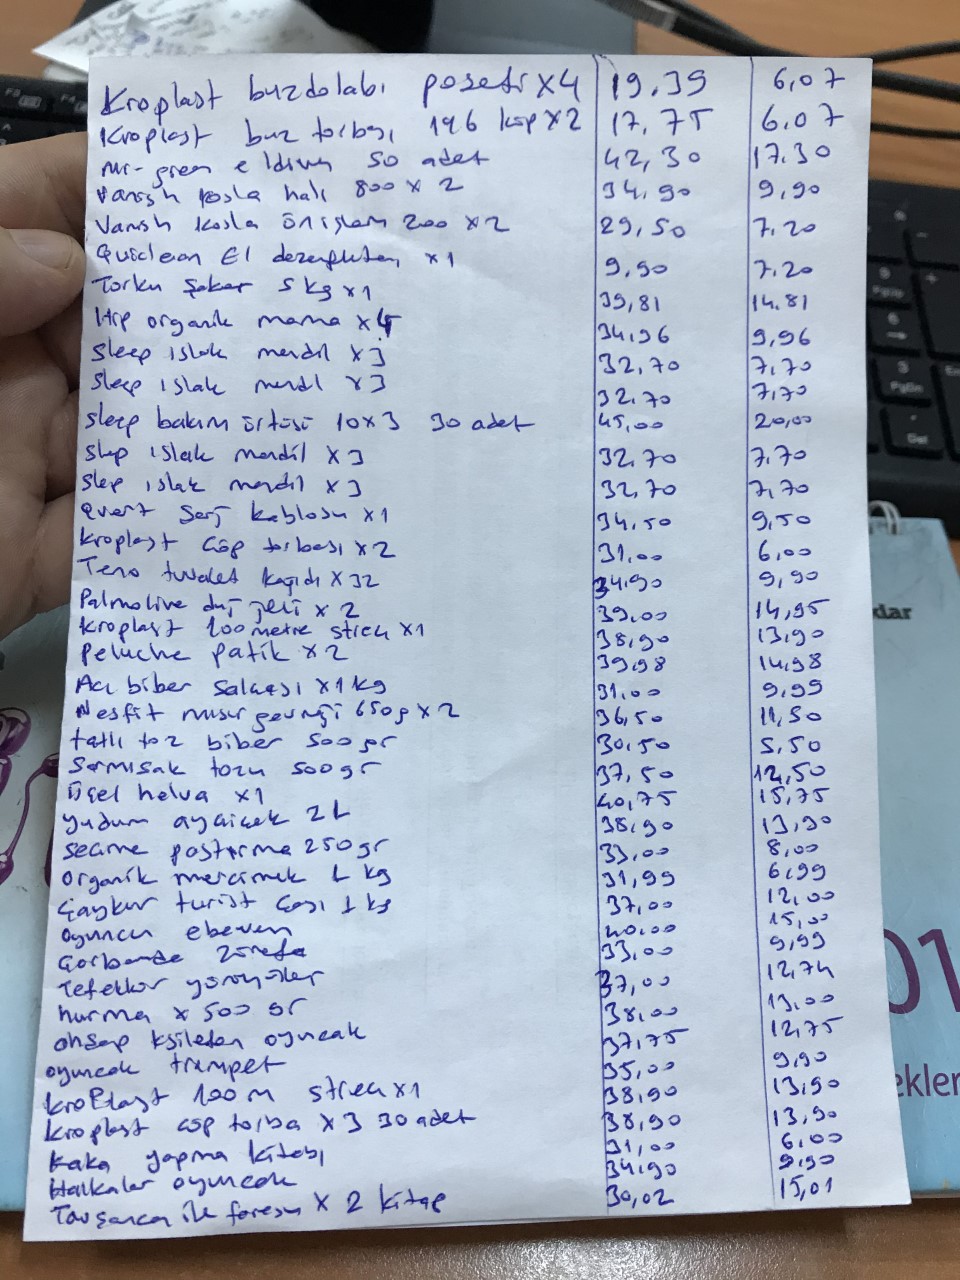 Kroplast buzdolabı poşeti x4 19,39 6,07
Kroplast buz torbası 196 küp x2 17,75 6,07
mr-green eldiven 50 adet 42,30 17,30
Vanısh kosla halı 800 x 2 34,90 9,90
Vanısh kosla önişlem 200 x2 29,50 7,20
El dezenfektan x1 9,90 7,20
Torku şeker 5 kg x1 39,81 14,81
Hıp organik mama x4 34,96 9,96
Sleep ıslak mendil x3 32,70 7,70
Sleep ıslak mendıl x3 32,70 7,70
Sleep bakım örtüsü 10x3 30 adet 45,00 20,00
Slep ıslak mendil x3 32,70 7,70
Slep ıslak mendil x3 32,70 7,70
şarj kablosu x1 34,50 9,50
Kroplast çöp torbası x2 31,00 6,00
Teno tuvalet kağıdı x32 34,90 9,90
Palmolive duş jeli x2 39,00 14,95
Kroplast 100 metre streç x1 38,90 13,90
Peluche patik x2 39,98 14,98
Acı biber salçası x1 kg 31,00 9,99
Nesfit mısır gevreği 650g x2 36,50 11,50
tatlı toz biber 500 gr 30,50 5,50
Sarmısak tozu 500 gr 37,50 12,50
helva x1 40,75 15,75
yudum ayçiçek 2L 38,90 13,90
pastırma 250 gr 33,00 8,00
organik mercimek 1 kg 31,99 6,99
Çaykur turist çayı 1 kg 37,00 12,00
oyuncu ebeveyn 40,00 15,00
33,00 9,99
Tefekkür yürüyüşler 37,00 12,74
hurma x 500 gr 38,00 13,00
ahşap oyuncak 37,75 12,75
oyuncak trampet 35,00 9,90
Kroplast 100m streç x1 38,90 13,90
Kroplast çöp torba x3 30 adet 38,90 13,90
Kaka yapma kitabı 31,00 6,00
Halkalar oyuncak 34,90 9,90
Tavşancık ile faresu x 2 kitap 30,02 15,01
dar
01
ekler